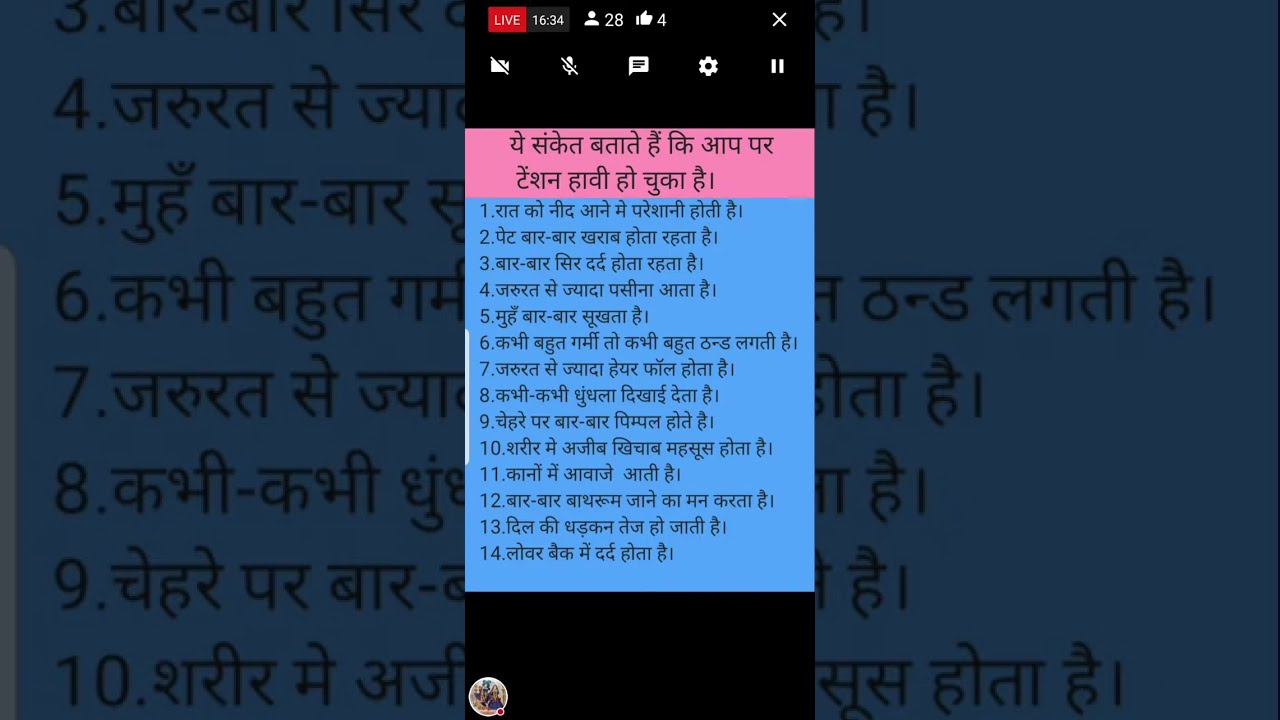 LIVE 16:34 28 4
ये संकेत बताते हैं कि आप पर
टेंशन हावी हो चुका है।
1.रात को नीद आने मे परेशानी होती है।
2.पेट बार-बार खराब होता रहता है।
3.बार-बार सिर दर्द होता रहता है।
4.जरुरत से ज्यादा पसीना आता है।
5.मुहँ बार-बार सूखता है।
6.कभी बहुत गर्मी तो कभी बहुत ठन्ड लगती है।
7.जरुरत से ज्यादा हेयर फॉल होता है।
8.कभी-कभी धुंधला दिखाई देता है।
9.चेहरे पर बार-बार पिम्पल होते है।
10.शरीर मे अजीब खिचाब महसूस होता है।
11.कानों में आवाजे आती है।
12.बार-बार बाथरूम जाने का मन करता है।
13.दिल की धड़कन तेज हो जाती है।
14.लोवर बैक में दर्द होता है।